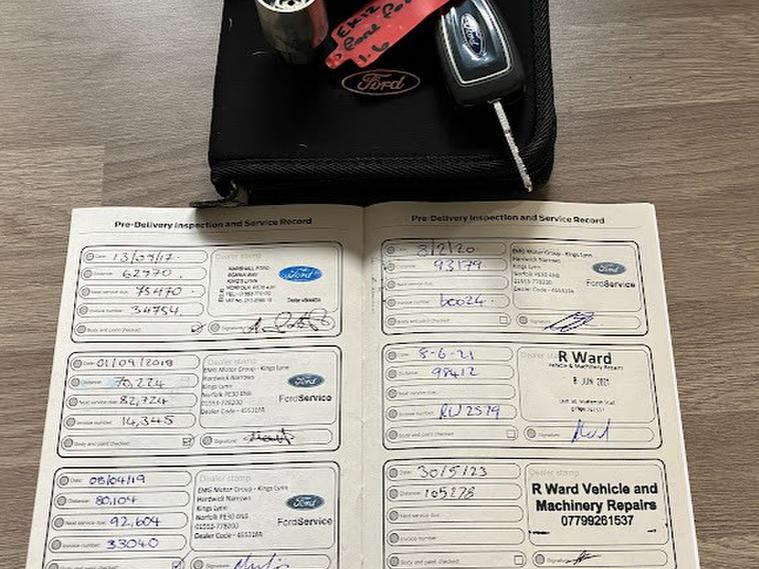 EK12
Ford
1.6
Ford
Ford
Pre-Delivery Inspection and Service Record
Date: 13/09/17
Distance: 62970
Next service due: 75470
Invoice number: 34754
Body and paint checked:
Dealer stamp
MARSHALL FORD
SCANIA WAY
KING'S LYNN
Ford
Signature:
Date: 01/09/2018
Distance: 70,224
Next service due: 82,724
Invoice number: 14,345
Body and paint checked:
Dealer stamp
EMG Motor Group - Kings Lynn
Hardwick Narrows
Kings Lynn
Norfolk PE30 4NB
01553-778200
Dealer Code - 45531FA
Ford
FordService
Signature:
Date: 08/04/19
Distance: 80,104
Next service due: 92,604
Invoice number: 33040
Body and paint checked:
Dealer stamp
EMG Motor Group - Kings Lynn
Hardwick Narrows
Kings Lynn
Norfolk PE30 4NB
01553-778200
Dealer Code - 45531FA
Ford
FordService
Signature:
Pre-Delivery Inspection and Service Record
Date: 8/2/20
Distance: 93179
Next service due:
Invoice number: 60024
Body and paint checked:
EMG Motor Group - Kings Lynn
Hardwick Narrows
Kings Lynn
Norfolk PE30 4NB
01553-778200
Ford
FordService
Signature:
Date: 8-6-21
Distance: 98412
Next service due:
Invoice number: RW2579
Body and paint checked:
Dealer stamp
R Ward
Vehicle & Machinery Repairs
8 JUN 2021
Signature:
Date: 30/5/23
Distance: 105278
Next service due:
Invoice number:
Body and paint checked:
Dealer stamp
R Ward Vehicle and
Machinery Repairs
07799261537
Signature: